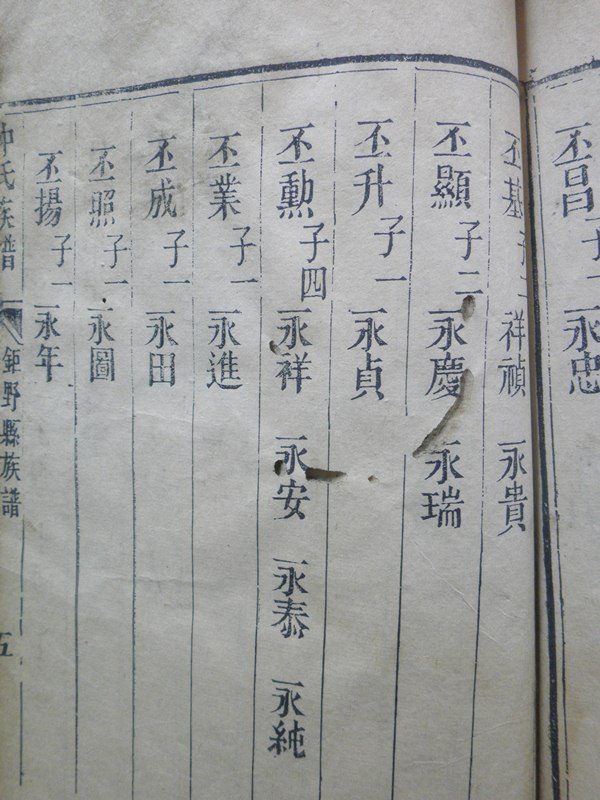 丕昌 子一 永忠
丕基 子 祥禎 永貴
丕顯 子二 永慶 永瑞
丕升 子一 永貞
丕勳 子四 永祥 永安 永泰 永純
丕業 子一 永進
丕成 子一 永田
丕照 子一 永圖
丕揚 子一 永年
仲氏族譜 鉅野縣族譜 五